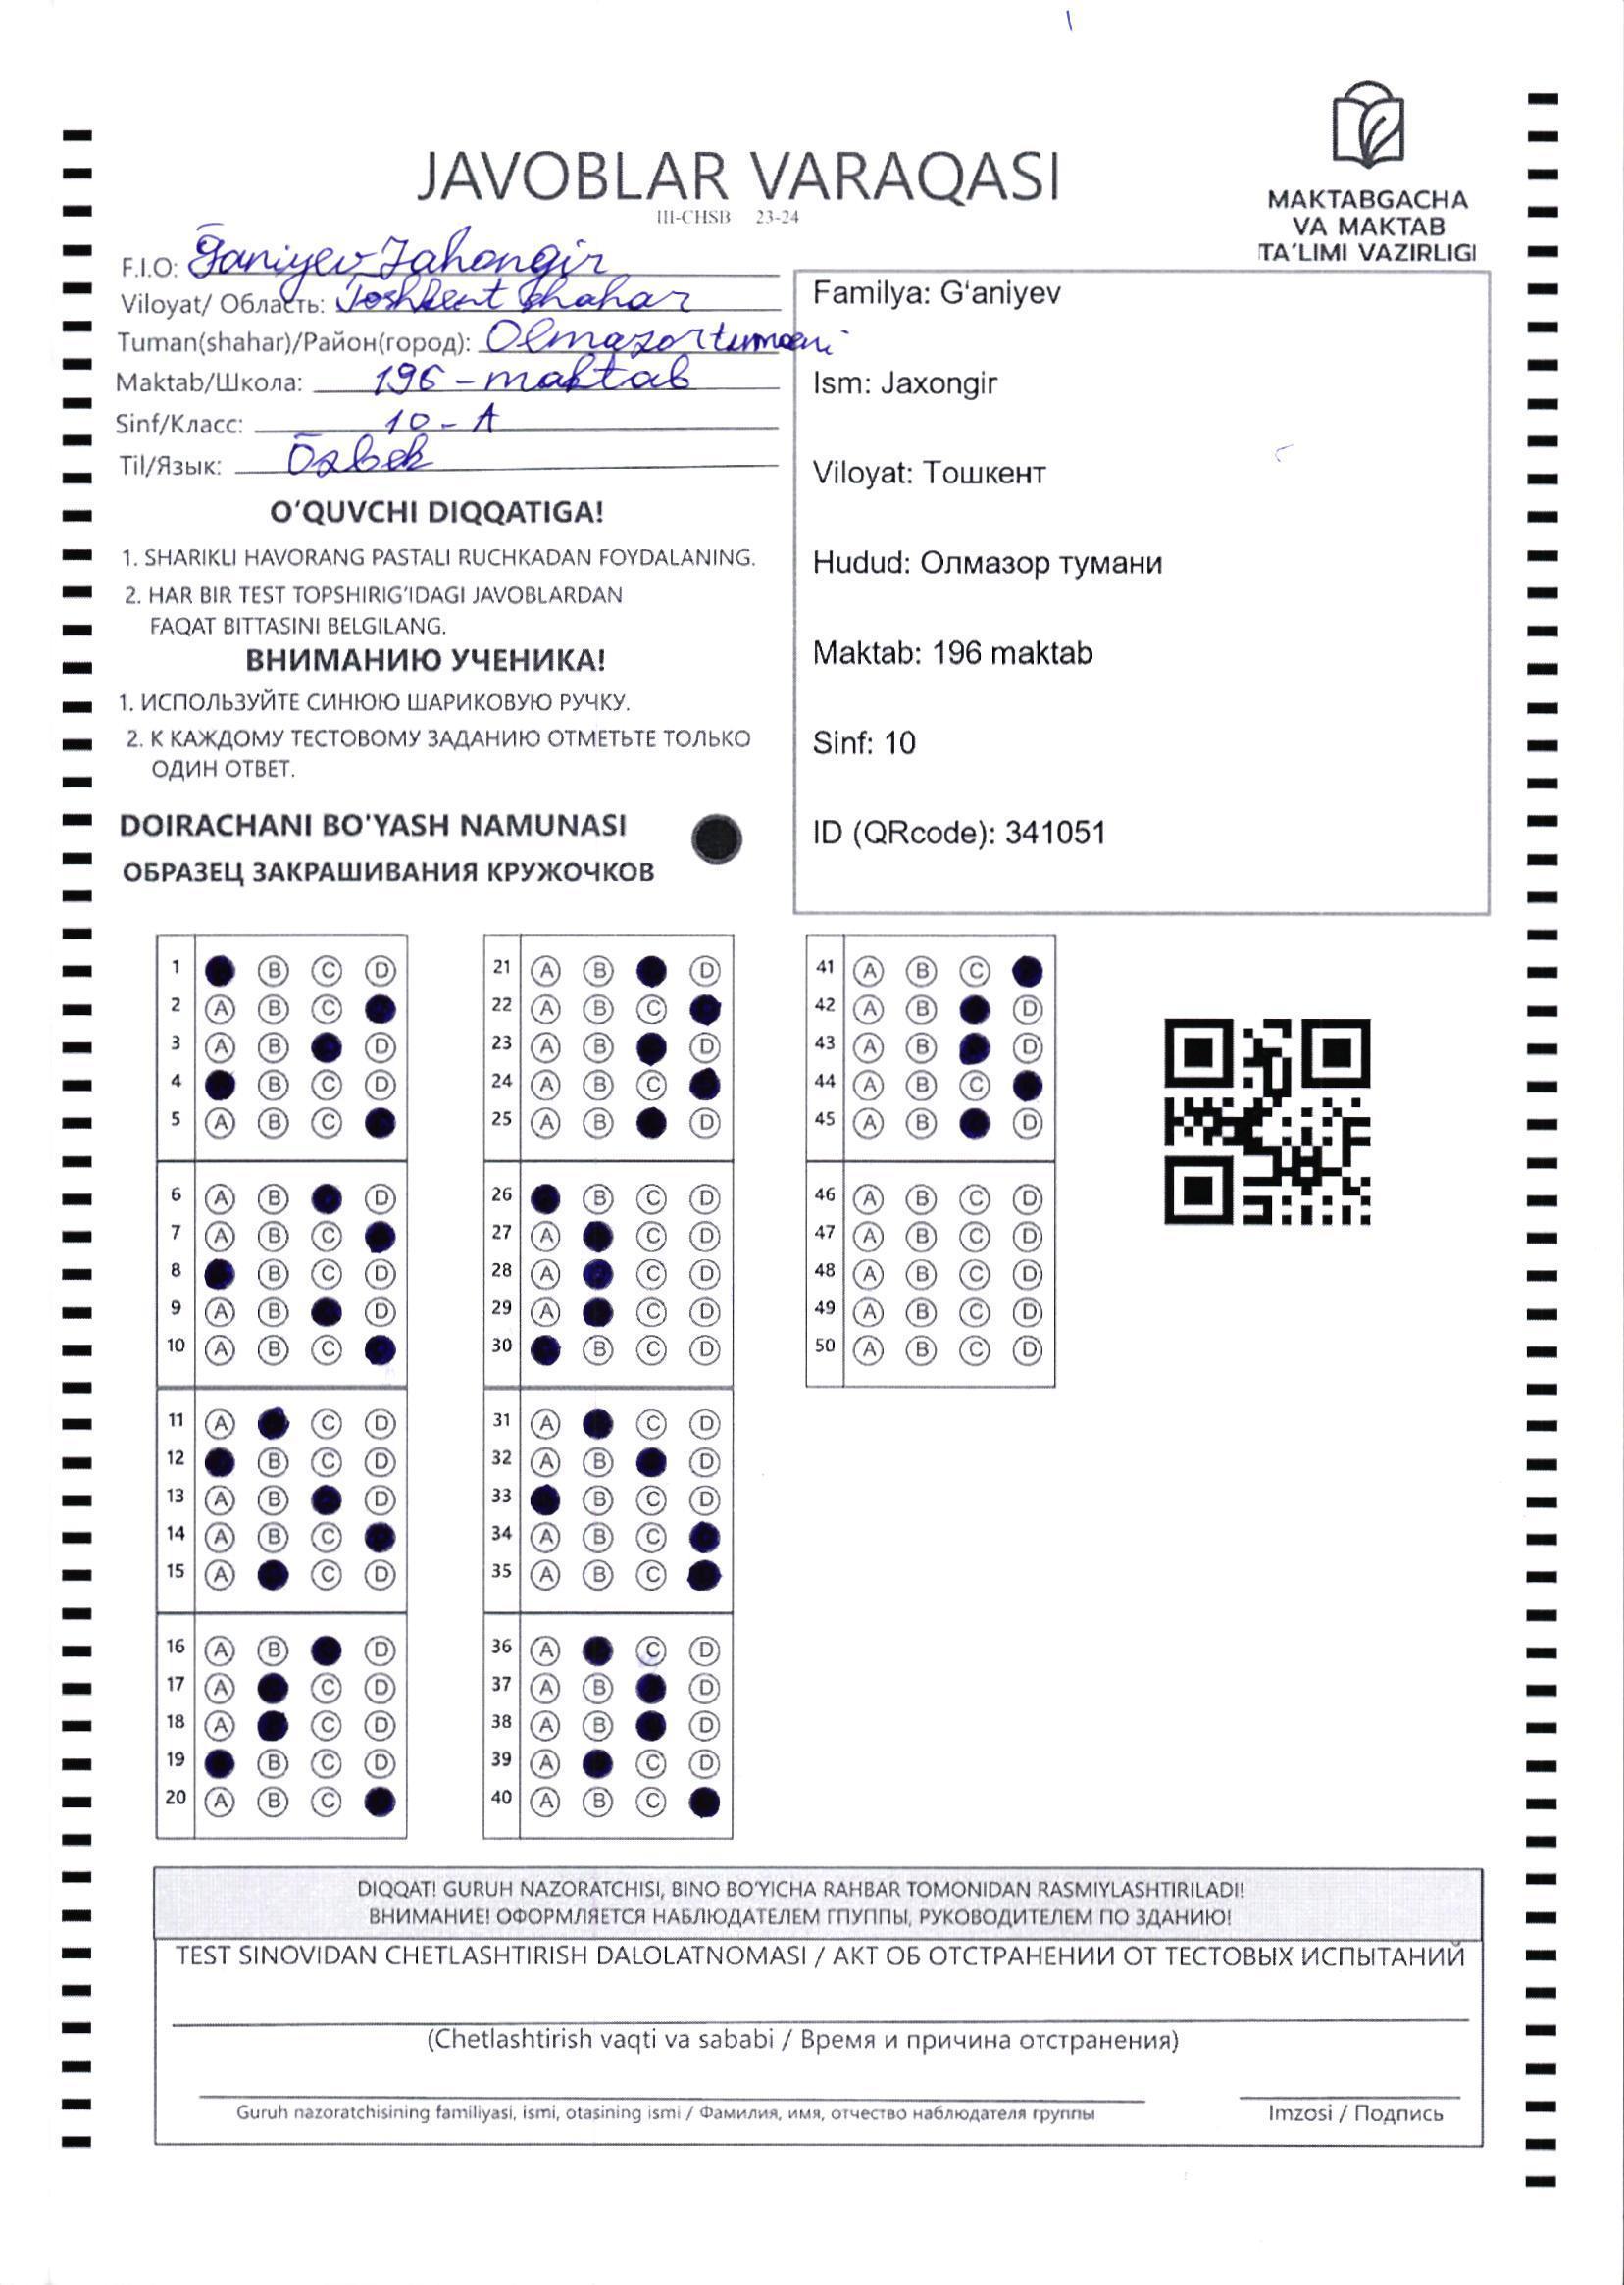 JAVOBLAR VARAQASI
III-CHSB 23-24
MAKTABGACHA
VA MAKTAB
TA'LIMI VAZIRLIGI
F.I.O: Ḡaniyev Jahongir
Viloyat/ Область: Toshkent shahar
Tuman(shahar)/Район(город): Olmazor tumani
Maktab/Школа: 196 - maktab
Sinf/Класс: 10 - A
Til/Язык: Ōzbek
Familya: G‘aniyev
Ism: Jaxongir
Viloyat: Тошкент
Hudud: Олмазор тумани
Maktab: 196 maktab
Sinf: 10
ID (QRcode): 341051
O'QUVCHI DIQQATIGA!
1. SHARIKLI HAVORANG PASTALI RUCHKADAN FOYDALANING.
2. HAR BIR TEST TOPSHIRIG'IDAGI JAVOBLARDAN
FAQAT BITTASINI BELGILANG.
ВНИМАНИЮ УЧЕНИКА!
1. ИСПОЛЬЗУЙТЕ СИНЮЮ ШАРИКОВУЮ РУЧКУ.
2. К КАЖДОМУ ТЕСТОВОМУ ЗАДАНИЮ ОТМЕТЬТЕ ТОЛЬКО
ОДИН ОТВЕТ.
DOIRACHANI BO'YASH NAMUNASI
ОБРАЗЕЦ ЗАКРАШИВАНИЯ КРУЖОЧКОВ
1 B C D
2 A B C
3 A B D
4 B C D
5 A B C
6 A B D
7 A B C
8 B C D
9 A B D
10 A B C
11 A C D
12 B C D
13 A B D
14 A B C
15 A C D
16 A B D
17 A C D
18 A C D
19 B C D
20 A B C
21 A B D
22 A B C
23 A B D
24 A B C
25 A B D
26 B C D
27 A C D
28 A C D
29 A C D
30 B C D
31 A C D
32 A B D
33 B C D
34 A B C
35 A B C
36 A C D
37 A B D
38 A B D
39 A C D
40 A B C
41 A B C
42 A B D
43 A B D
44 A B C
45 A B D
46 A B C D
47 A B C D
48 A B C D
49 A B C D
50 A B C D
DIQQAT! GURUH NAZORATCHISI, BINO BO'YICHA RAHBAR TOMONIDAN RASMIYLASHTIRILADI!
ВНИМАНИЕ! ОФОРМЛЯЕТСЯ НАБЛЮДАТЕЛЕМ ГПУППЫ, РУКОВОДИТЕЛЕМ ПО ЗДАНИЮ!
TEST SINOVIDAN CHETLASHTIRISH DALOLATNOMASI / АКТ ОБ ОТСТРАНЕНИИ ОТ ТЕСТОВЫХ ИСПЫТАНИЙ
(Chetlashtirish vaqti va sababi / Время и причина отстранения)
Guruh nazoratchisining familiyasi, ismi, otasining ismi / Фамилия, имя, отчество наблюдателя группы
Imzosi / Подпись